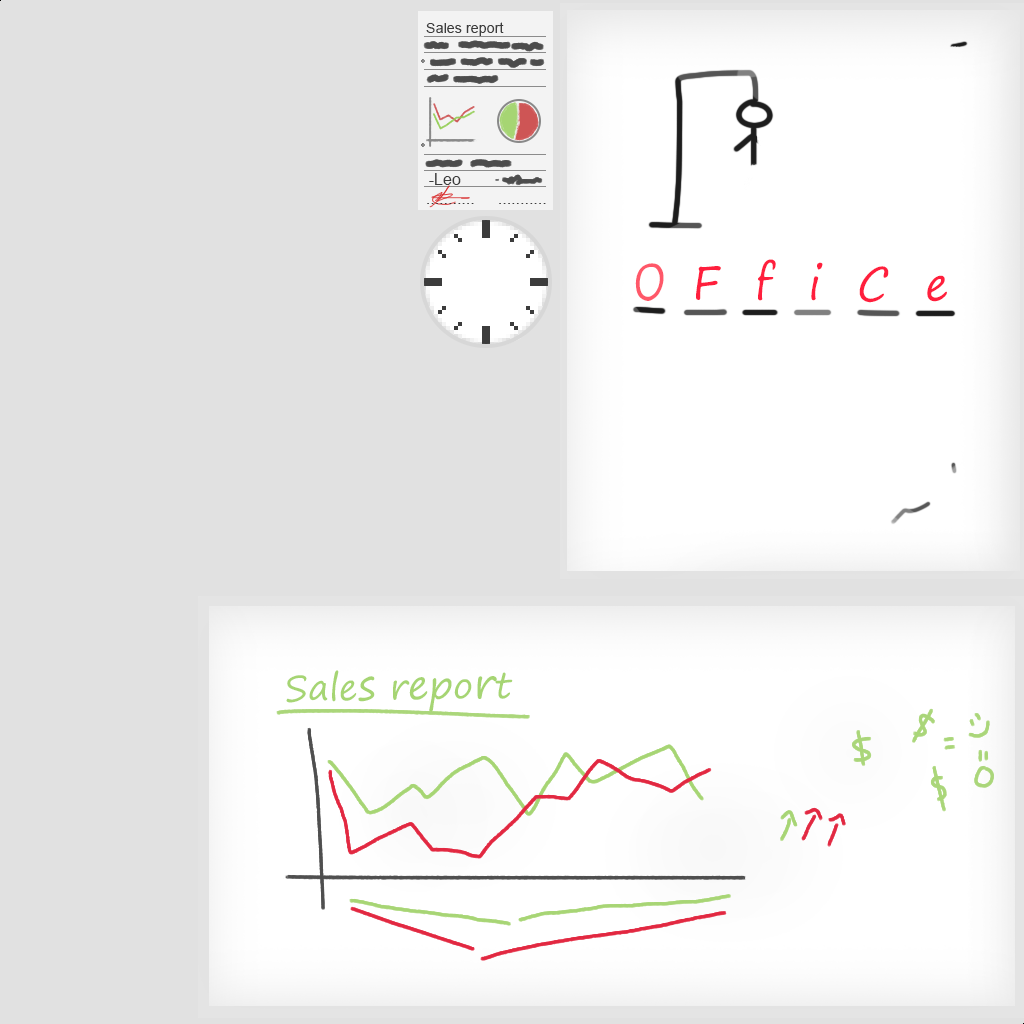 Sales report
-Leo
O F f i C e
Sales report
$ $ = :)
$ = 0